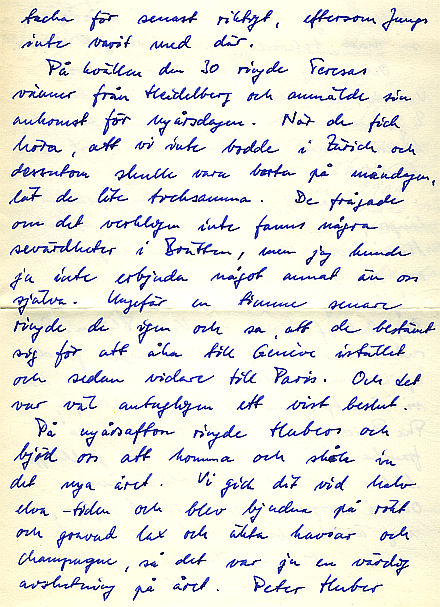 tacka för senast riktigt, eftersom Jungs
inte varit med där.
På kvällen den 30 ringde Teresas
vänner från Heidelberg och anmälde sin
ankomst för nyårsdagen. När de fick
höra, att vi inte bodde i Zürich och
dessutom skulle vara borta på måndagen,
lät de lite tveksamma. De frågade
om det verkligen inte fanns några
sevärdheter i Brütten, men jag kunde
ju inte erbjuda något annat än oss
själva. Ungefär en timme senare
ringde de igen och sa, att de bestämt
sig för att åka till Genève istället
och sedan vidare till Paris. Och det
var väl antagligen ett vist beslut.
På nyårsafton ringde Hubers och
bjöd oss att komma och skåla in
det nya året. Vi gick dit vid halv
elva-tiden och blev bjudna på rökt
och gravad lax och äkta kaviar och
champagne, så det var ju en värdig
avslutning på året. Peter Huber